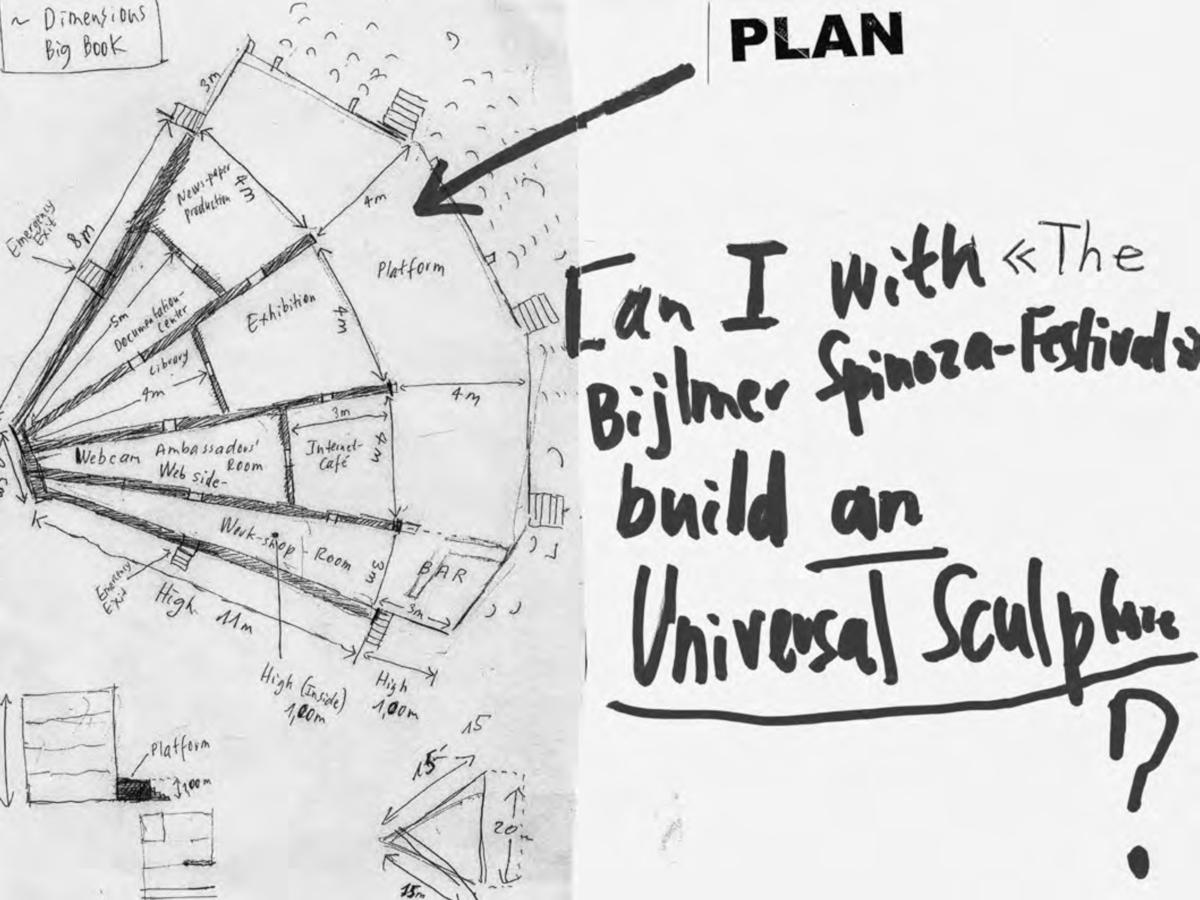 ~ Dimensions
Big Book
PLAN
3m
News-paper
Production
4m
4m
Emergency
Exit
8m
Platform
5m
Documentation-
Center
Exhibition
4m
Library
4m
4m
3m
4m
Webcam
Ambassadors'
Room
Web side-
Internet-
Café
Work-shop-Room
3m
BAR
3m
Emergency
Exit
High 11m
High (Inside)
1,00m
High
1,00m
Platform
1,00m
15
15
20m
15m
Can I with «The
Bijlmer Spinoza-Festival»
build an
Universal Sculpture
?